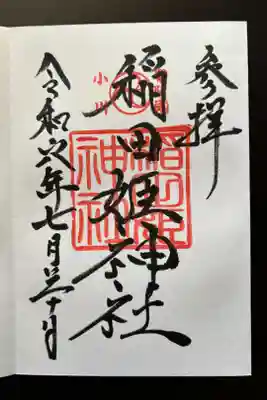 参拝
稲田姫神社
令和六年七月三十日
小川
稲田姫
神社